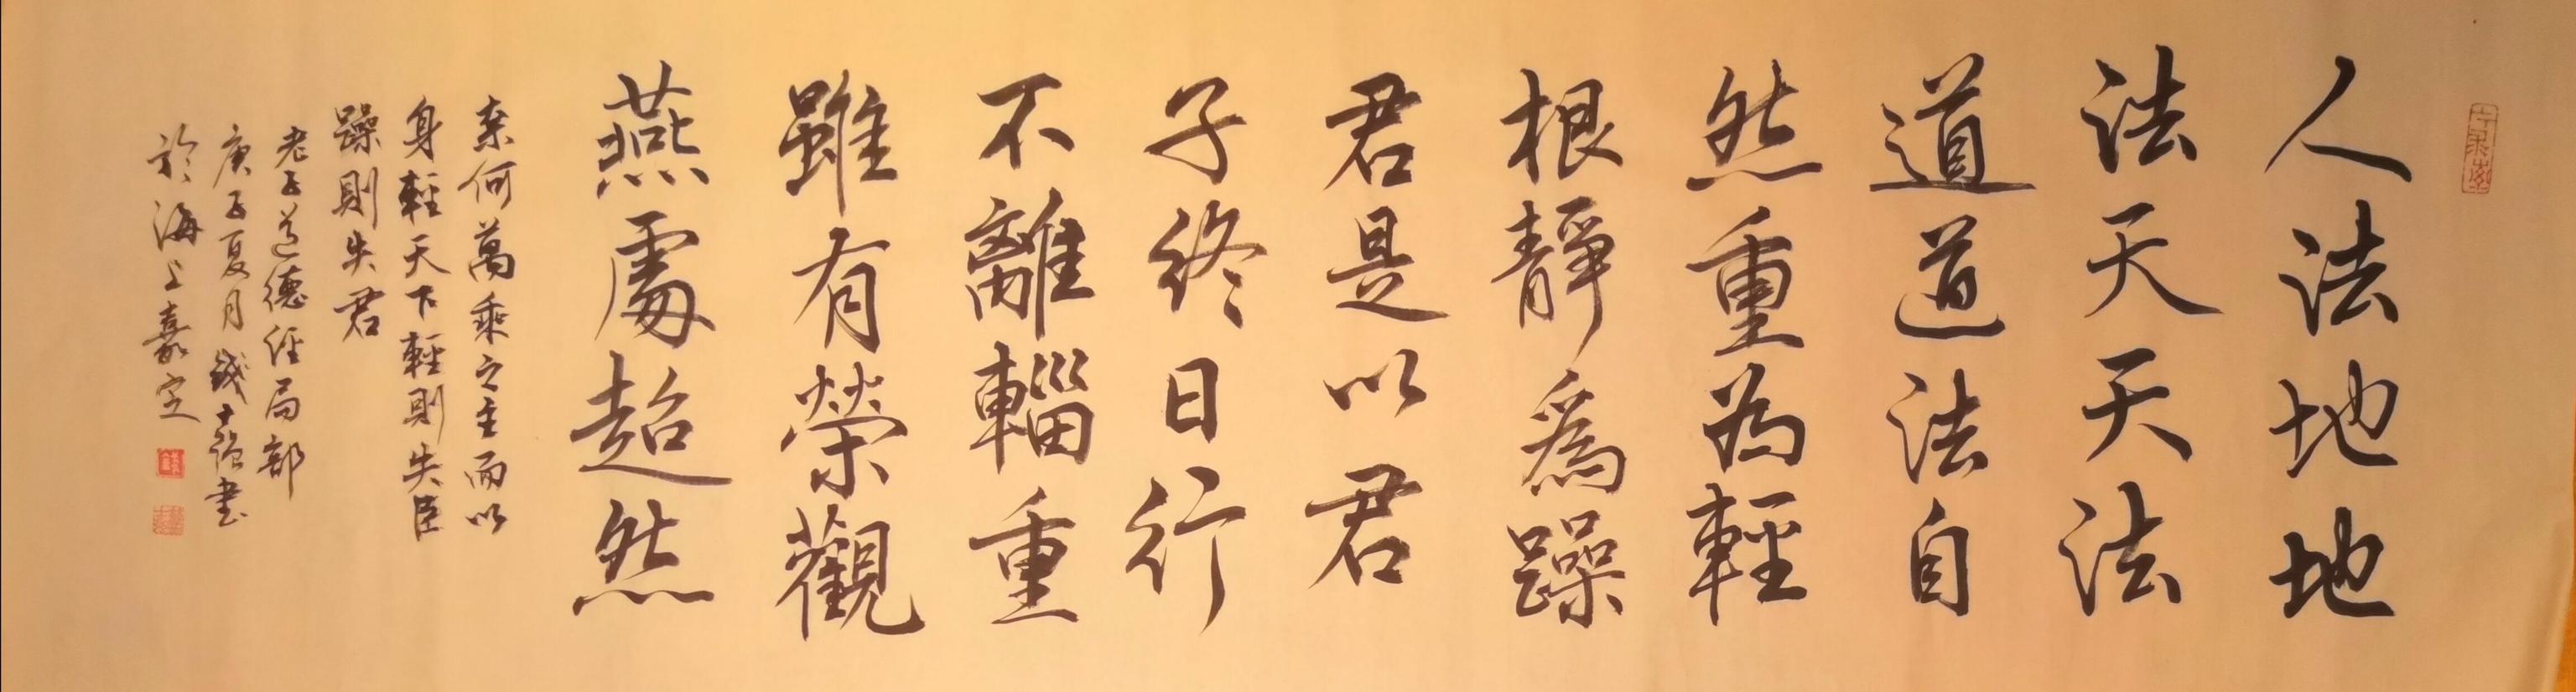 人法地地
法天天法
道道法自
然重為輕
根靜爲躁
君是以君
子終日行
不離輜重
雖有榮觀
燕處超然
奈何萬乘之主而以
身輕天下輕則失臣
躁則失君
老子道德经局部
庚子夏月钱士强书
於海上嘉定